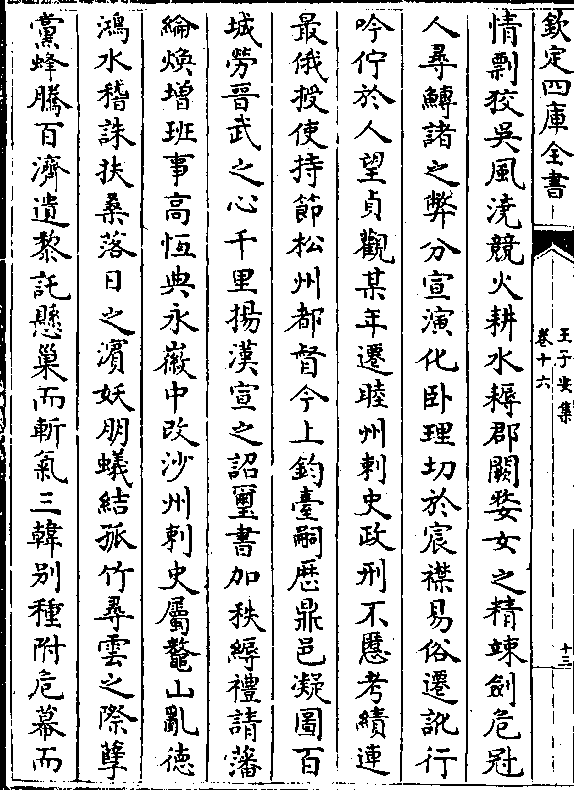 欽定四庫全書
王子安集
卷十六
十三
情剽狡吳風澆競火耕水耨郡闕婺女之精竦劍危冠
人尋鱄諸之弊分宣演化卧理切於宸襟易俗遷訛行
吟佇於人望貞觀某年遷睦州刺史政刑不慝考績連
最俄授使持節松州都督今上鈞臺嗣歴鼎邑凝圖百
城勞晉武之心千里揚漢宣之詔璽書加秩縟禮請藩
綸煥增班事高恆典永徽中改沙州刺史屬鼇山亂徳
鴻水稽誅扶桑落日之濱妖朋蟻結孤竹尋雲之際孽
黨蜂騰百濟遺黎託懸巢而斬氣三韓别種附危幕而